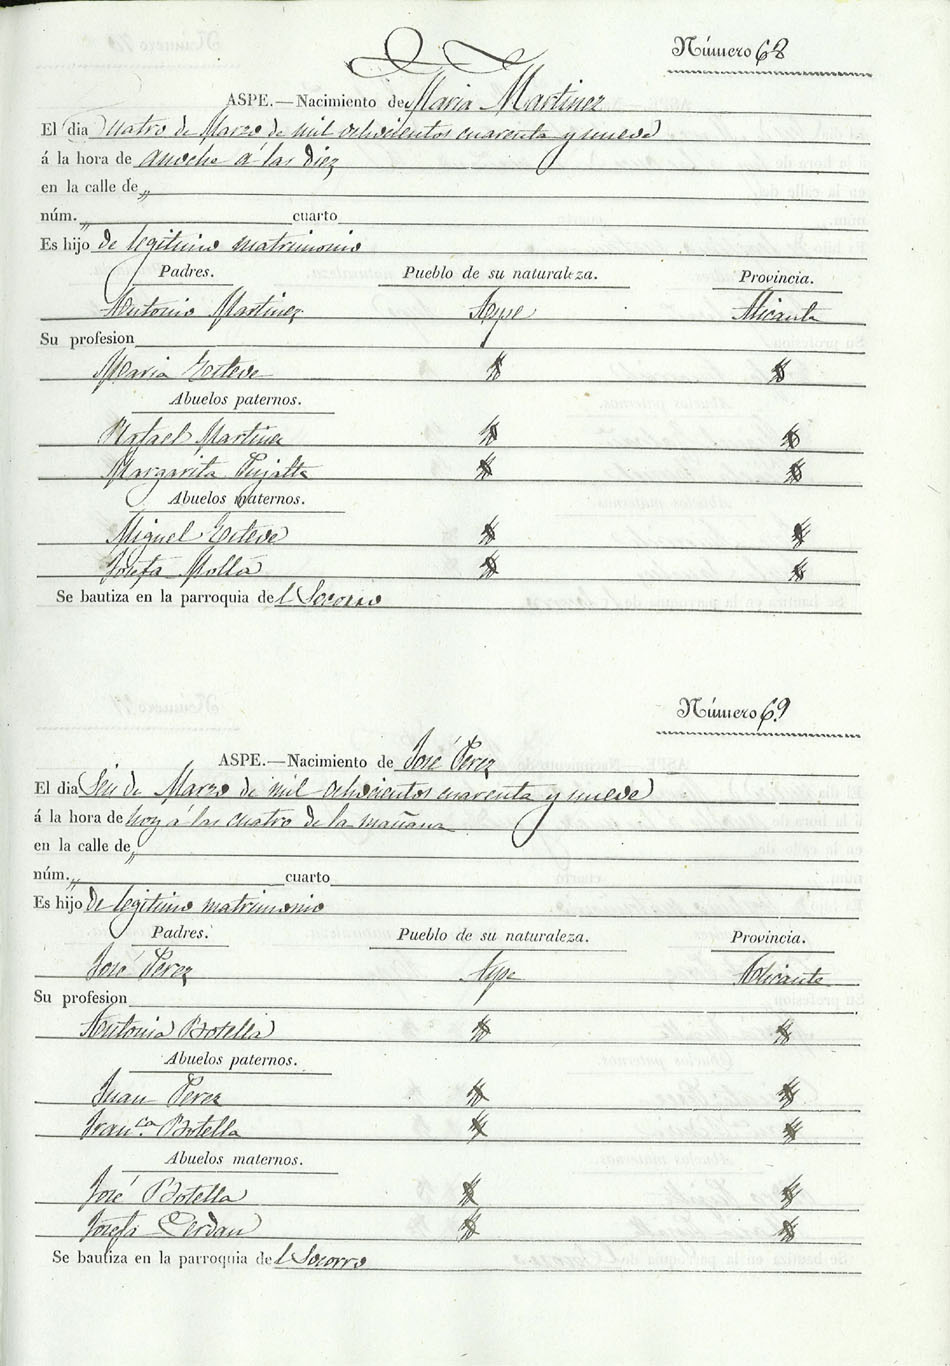 Número 68
ASPE.—Nacimiento de Maria Martinez
El dia Cuatro de Marzo de mil ochocientos cuarenta y nueve
á la hora de anoche a las diez
en la calle de „
núm. „ cuarto
Es hijo de legitimo matrimonio
Padres. Pueblo de su naturaleza. Provincia.
Antonio Martinez Aspe Alicante
Su profesion
Maria Esteve
Abuelos paternos.
Rafael Martinez
Margarita Pujalte
Abuelos maternos.
Miguel Esteve
Josefa Mollá
Se bautiza en la parroquia del Socorro
Número 69
ASPE.—Nacimiento de José Perez
El dia Seis de Marzo de mil ochocientos cuarenta y nueve
á la hora de hoy á las cuatro de la mañana
en la calle de „
núm. „ cuarto
Es hijo de legitimo matrimonio
Padres. Pueblo de su naturaleza. Provincia.
José Perez Aspe Alicante
Su profesion
Antonia Botella
Abuelos paternos.
Juan Perez
Fran.ca Botella
Abuelos maternos.
José Botella
Josefa Cerdan
Se bautiza en la parroquia del Socorro